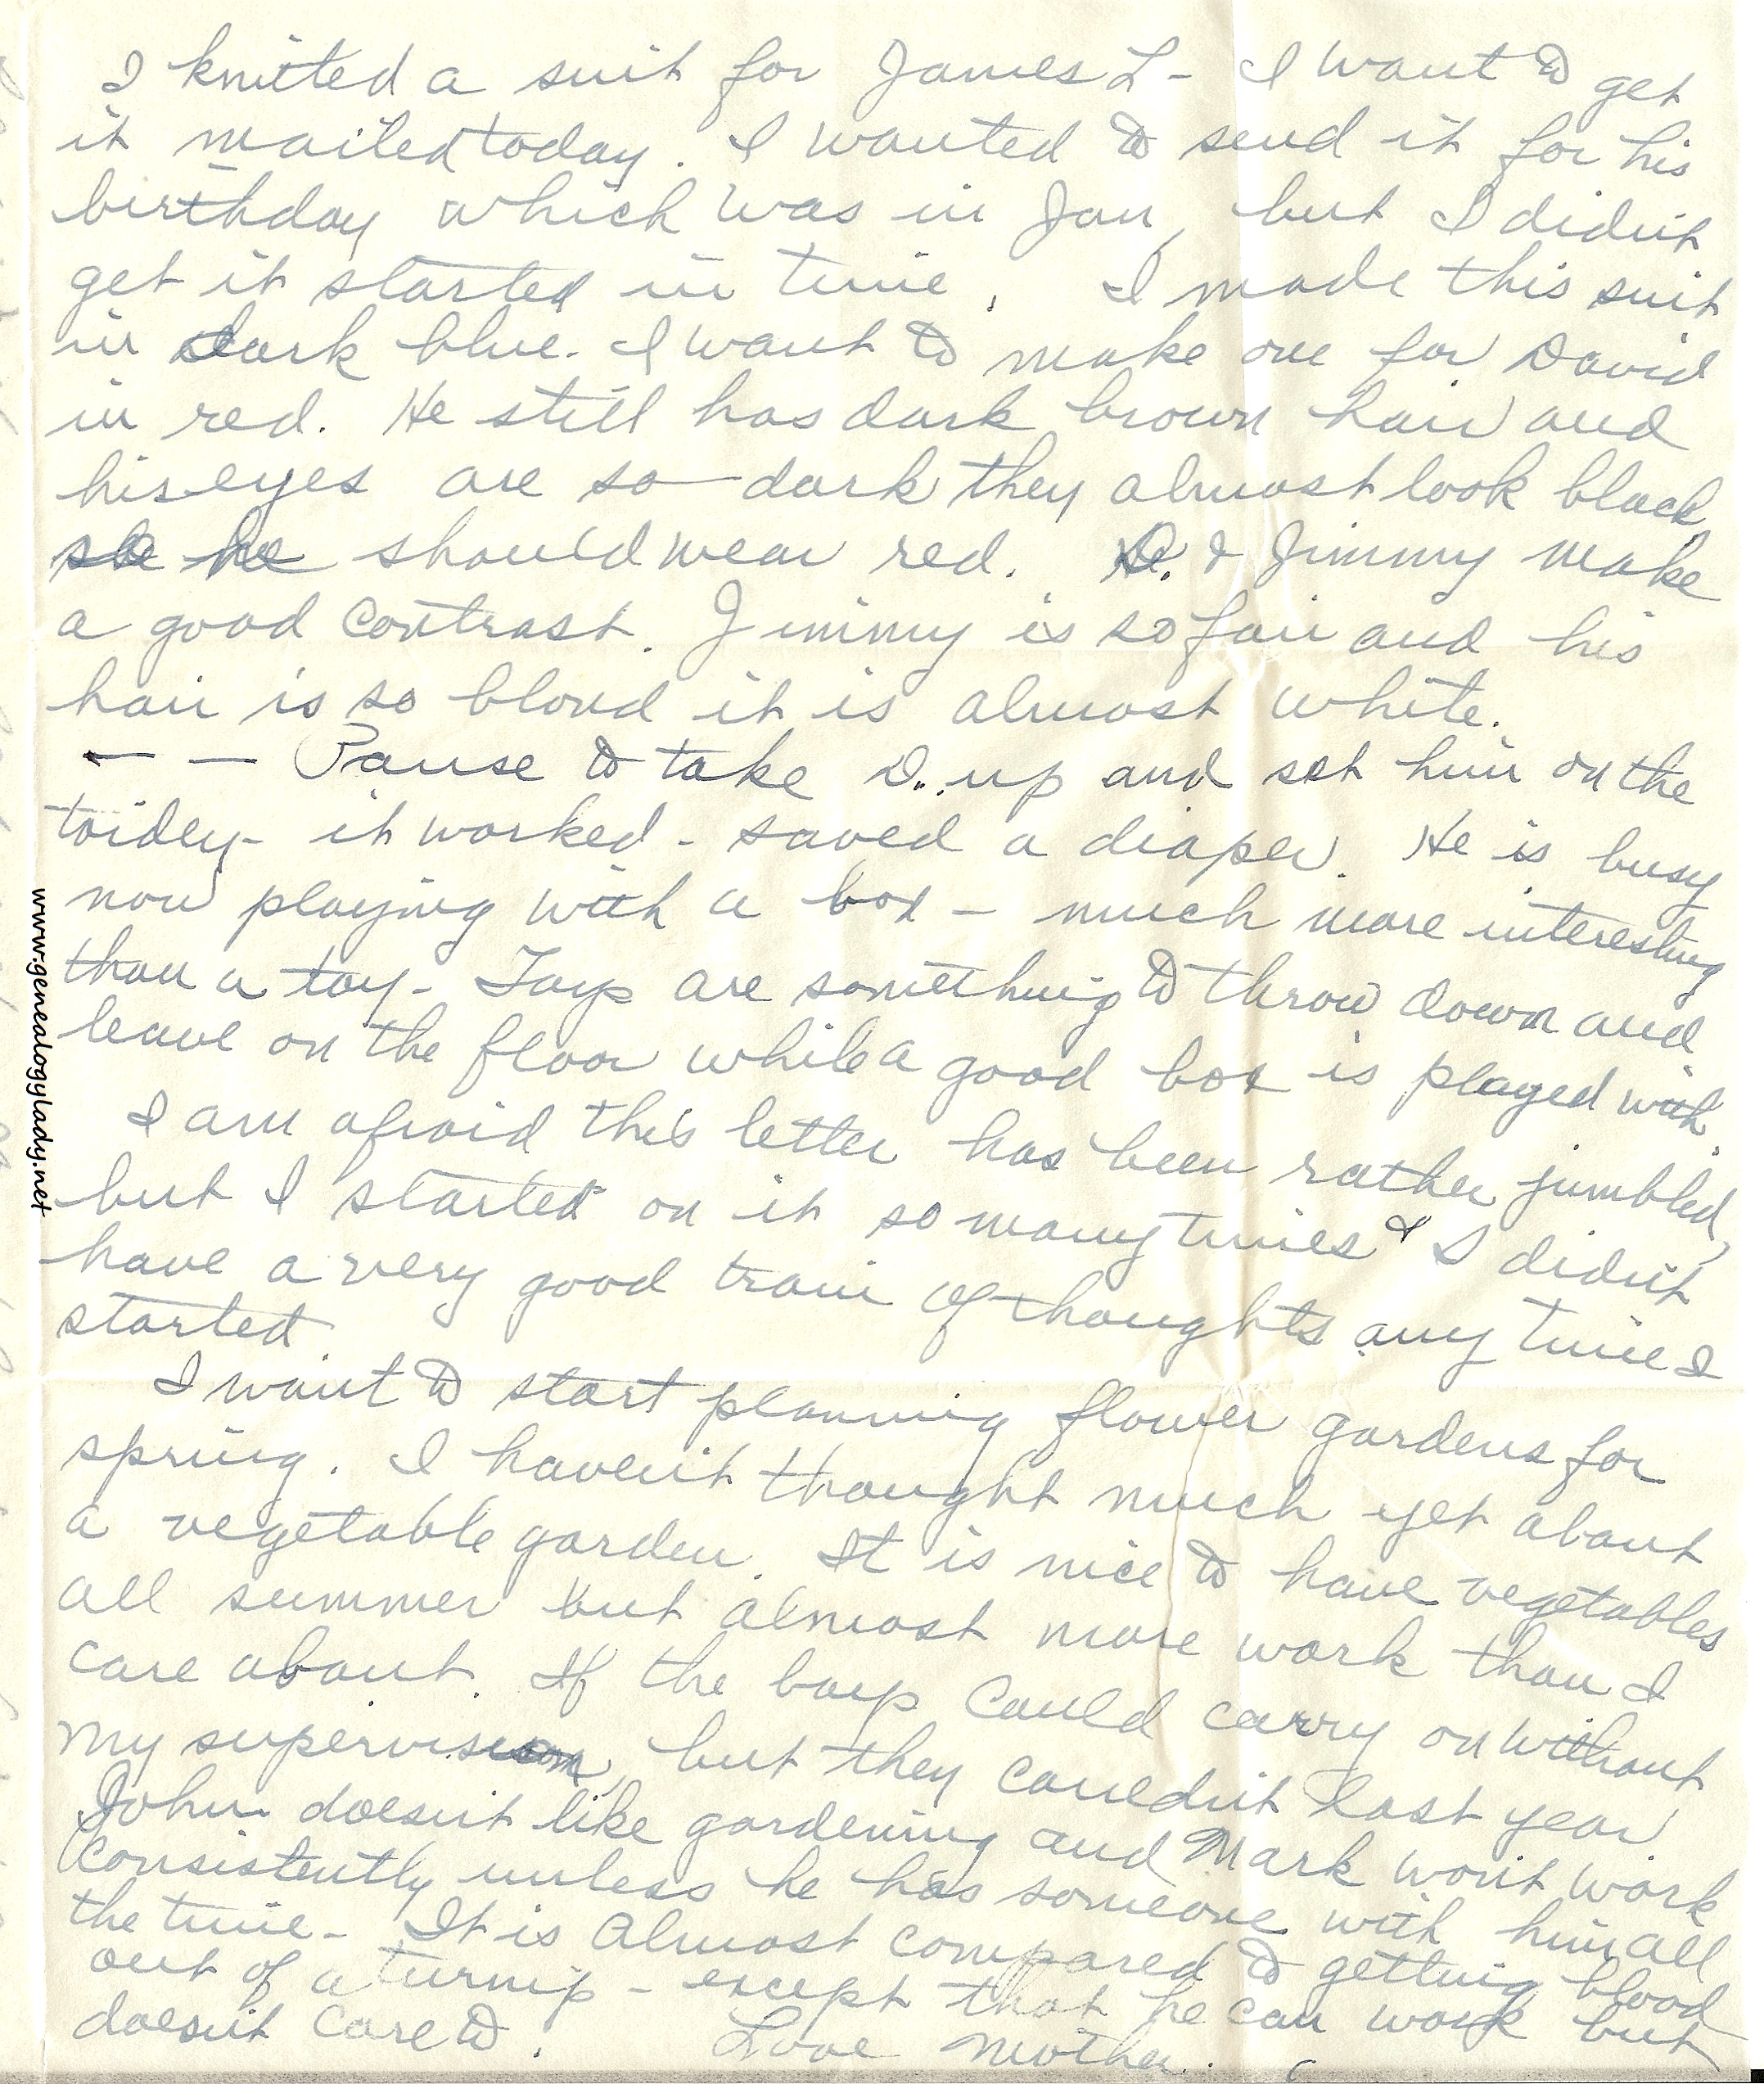 I knitted a suit for James L- I want to get
it mailed today. I wanted to send it for his
birthday which was in Jan, but I didn't
get it started in time. I made this suit
in dark blue. I want to make one for David
in red. He still has dark brown hair and
his eyes are so dark they almost look black,
so he should wear red. D. & Jimmy make
a good contrast. Jimmy is so fair and his
hair is so blond it is almost white.
— — Pause to take D. up and set him on the
toidey- it worked - saved a diaper. He is busy
now playing with a box - much more interesting
than a toy- Toys are something to throw down and
leave on the floor while a good box is played with.
I am afraid this letter has been rather jumbled,
but I started on it so many times & I didn't
have a very good train of thoughts any time I
started
I want to start planning flower gardens for
spring. I haven't thought much yet about
a vegetable garden. It is nice to have vegetables
all summer but almost more work than I
care about. If the boys could carry on without
my supervision, but they couldn't last year
John doesn't like gardening and Mark won't work
consistently unless he has someone with him all
the time- It is almost compared to getting blood
out of a turnip - except that he can work but
doesn't care to. Love Mother.
www.genealogylady.net